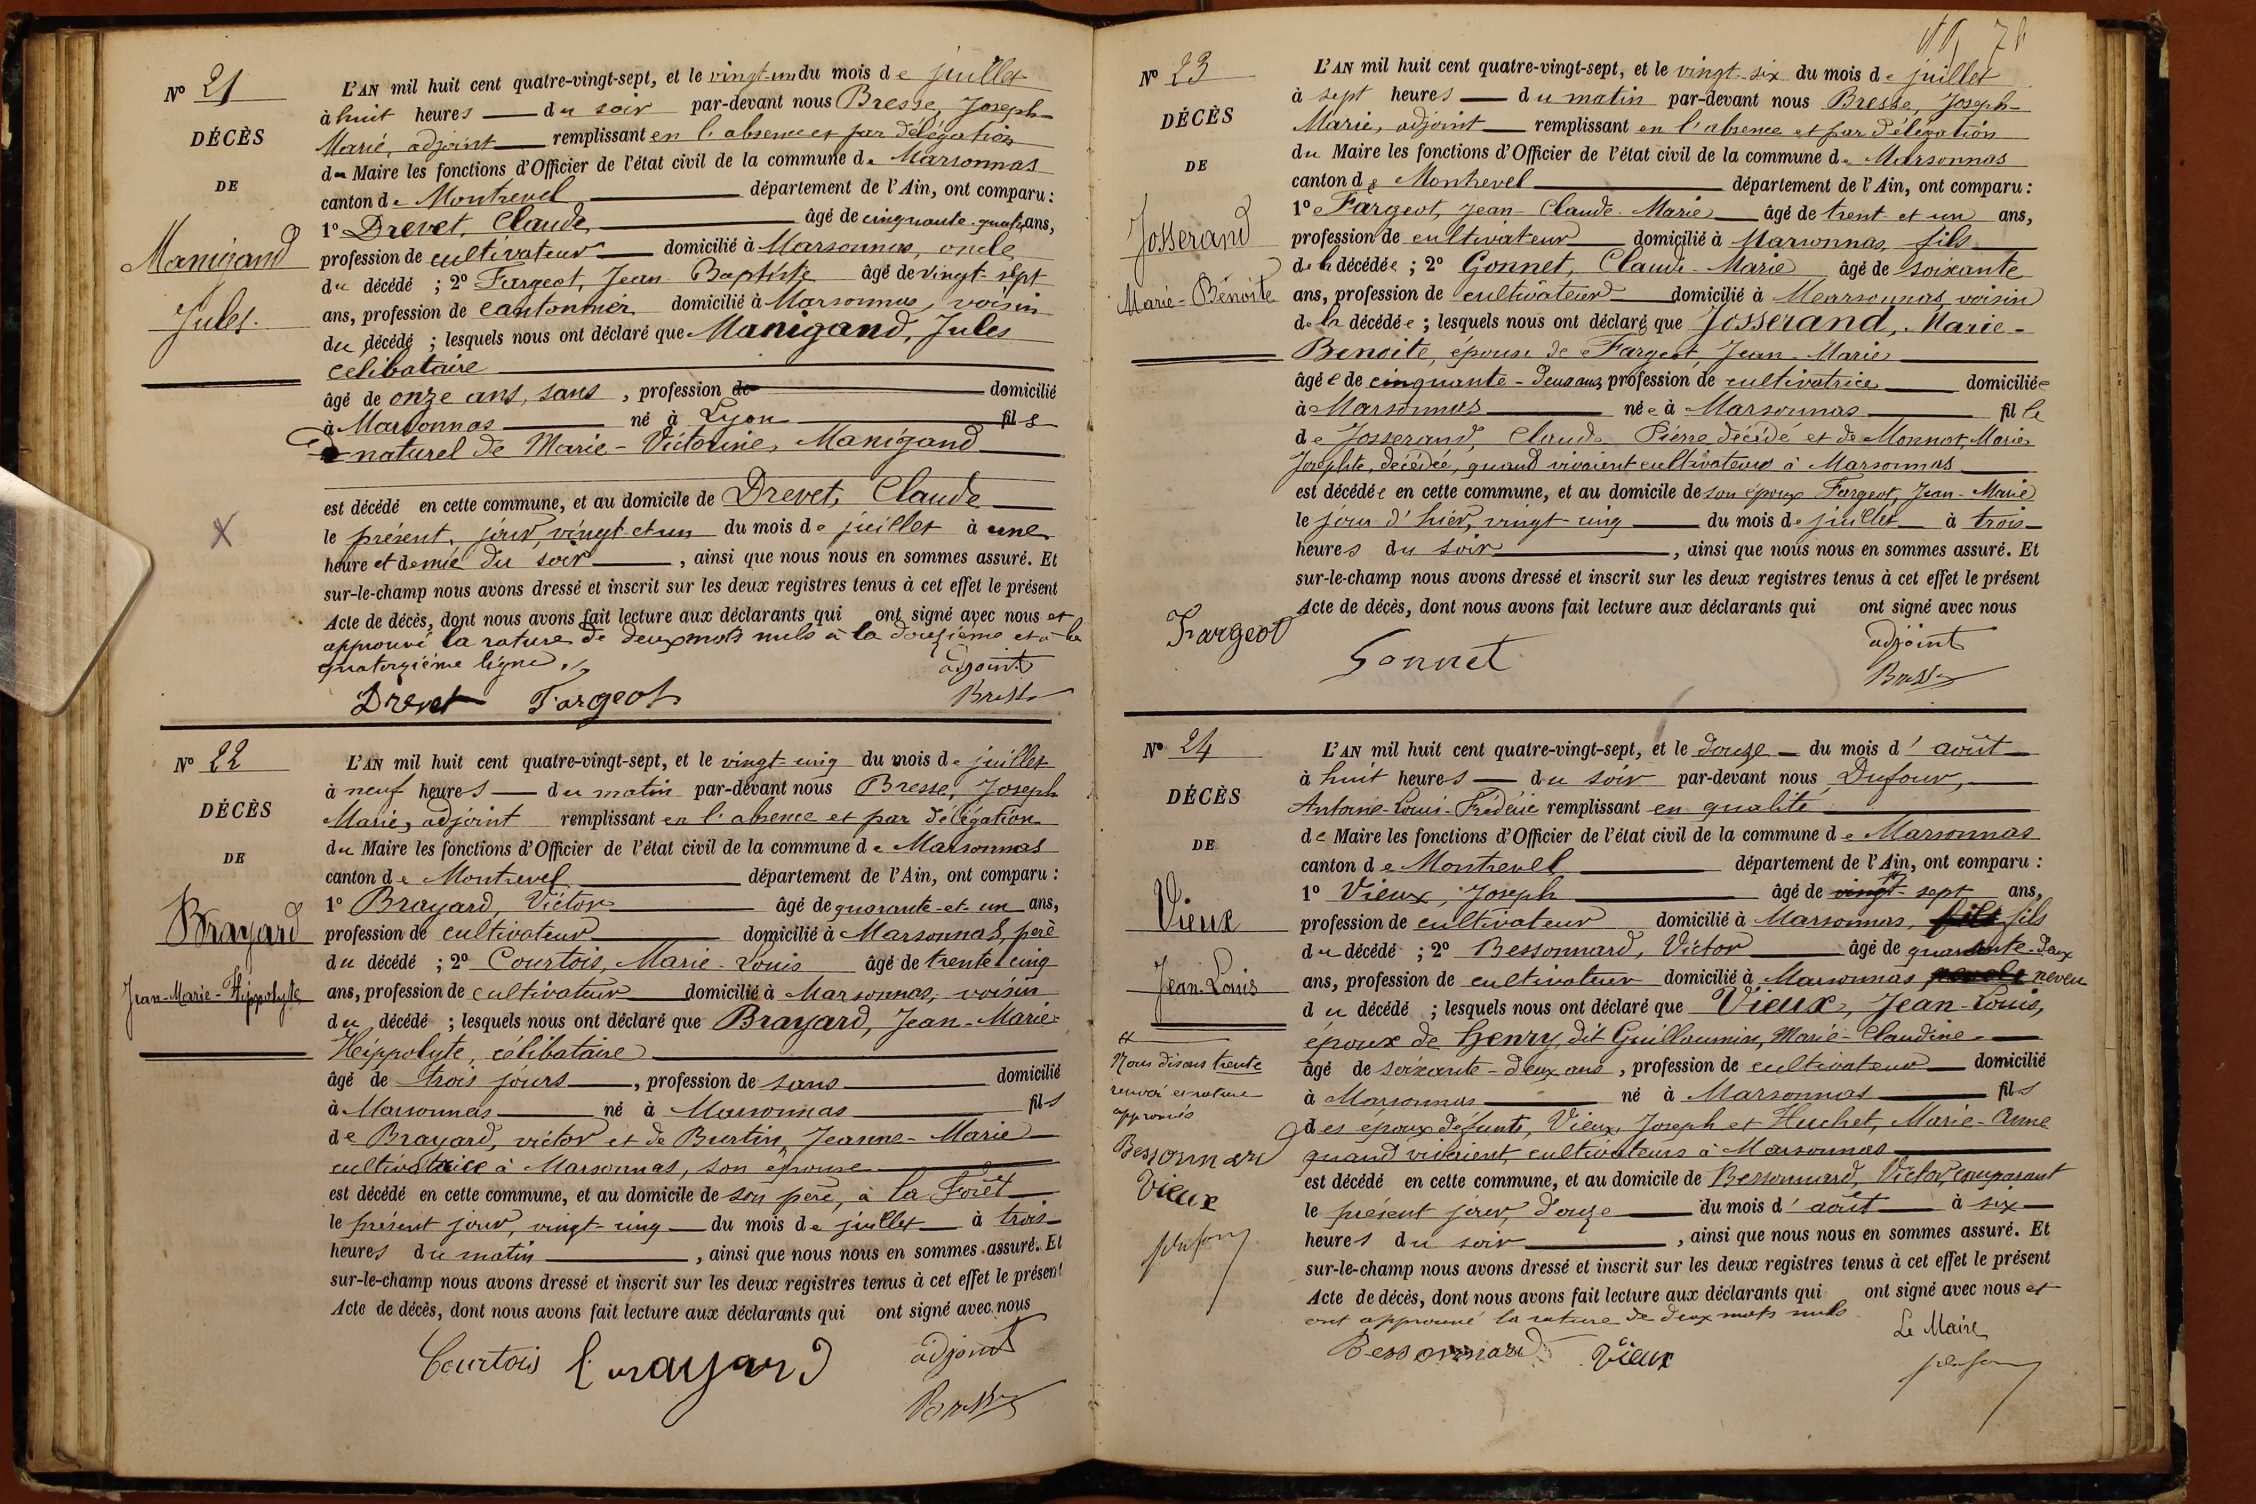 Nº 21
DÉCÈS
DE
Manigand
Jules.
L'AN mil huit cent quatre-vingt-sept, et le vingt-un du mois de juillet
à huit heures du soir par-devant nous Bresse, Joseph-
Marie, adjoint remplissant en l'absence et par délégation
du Maire les fonctions d'Officier de l'état civil de la commune de Marsonnas
canton de Montrevel département de l'Ain, ont comparu :
1º Drevet, Claude, âgé de cinquante-quatre ans,
profession de cultivateur domicilié à Marsonnas, oncle
du décédé ; 2º Fargeot, Jean Baptiste âgé de vingt-sept
ans, profession de cantonnier domicilié à Marsonnas, voisin
du décédé ; lesquels nous ont déclaré que Manigand, Jules
celibataire
âgé de onze ans, sans , profession de domicilié
à Marsonnas né à Lyon fils
naturel de Marie-Victorine, Manigand
est décédé en cette commune, et au domicile de Drevet, Claude
le présent jour, vingt et un du mois de juillet à une
heure et demie du soir , ainsi que nous nous en sommes assuré. Et
sur-le-champ nous avons dressé et inscrit sur les deux registres tenus à cet effet le présent
Acte de décès, dont nous avons fait lecture aux déclarants qui ont signé avec nous et
approuvé la rature de deux mots nuls à la douzième et à la
quatorzième ligne.
adjoint
Drevet Fargeot Bresse
Nº 22
DÉCÈS
DE
Brayard
Jean-Marie-Hippolyte
L'AN mil huit cent quatre-vingt-sept, et le vingt-cinq du mois de juillet
à neuf heures du matin par-devant nous Bresse, Joseph
Marie, adjoint remplissant en l'absence et par délégation
du Maire les fonctions d'Officier de l'état civil de la commune de Marsonnas
canton de Montrevel département de l'Ain, ont comparu :
1º Brayard, Victor âgé de quarante-et-un ans,
profession de cultivateur domicilié à Marsonnas, père
du décédé ; 2º Courtois, Marie-Louis âgé de trente cinq
ans, profession de cultivateur domicilié à Marsonnas, voisin
du décédé ; lesquels nous ont déclaré que Brayard, Jean-Marie-
Hippolyte, célibataire
âgé de trois jours , profession de sans domicilié
à Marsonnas né à Marsonnas fils
de Brayard, victor et de Burtin, Jeanne-Marie
cultivatrice à Marsonnas, son épouse
est décédé en cette commune, et au domicile de son père, à la Forêt
le présent jour, vingt-cinq du mois de juillet à trois
heures du matin , ainsi que nous nous en sommes assuré. Et
sur-le-champ nous avons dressé et inscrit sur les deux registres tenus à cet effet le présent
Acte de décès, dont nous avons fait lecture aux déclarants qui ont signé avec nous
Courtois Brayard adjoint
Bresse
Nº 23
DÉCÈS
DE
Josserand
Marie-Bénoite
L'AN mil huit cent quatre-vingt-sept, et le vingt-six du mois de juillet
à sept heures du matin par-devant nous Bresse, Joseph-
Marie, adjoint remplissant en l'absence et par délégation
du Maire les fonctions d'Officier de l'état civil de la commune de Marsonnas
canton de Montrevel département de l'Ain, ont comparu :
1º Fargeot, Jean-Claude-Marie âgé de trent et un ans,
profession de cultivateur domicilié à Marsonnas, fils
de la décédée ; 2º Gonnet, Claude-Marie âgé de soixante
ans, profession de cultivateur domicilié à Marsonnas, voisin
de la décédée ; lesquels nous ont déclaré que Josserand, Marie-
Benoite, épouse de Fargeot, Jean-Marie
âgée de cinquante-deux ans, profession de cultivatrice domiciliée
à Marsonnas née à Marsonnas fille
de Josserand, Claude-Pierre, décédé et de Monnot, Marie
Josephte, décédée, quand vivaient cultivateurs à Marsonnas
est décédée en cette commune, et au domicile de son époux Fargeot, Jean-Marie
le jour d'hier, vingt-cinq du mois de juillet à trois
heures du soir , ainsi que nous nous en sommes assuré. Et
sur-le-champ nous avons dressé et inscrit sur les deux registres tenus à cet effet le présent
Acte de décès, dont nous avons fait lecture aux déclarants qui ont signé avec nous
Fargeot Gonnet adjoint
Bresse
Nº 24
DÉCÈS
DE
Vieux
Jean-Louis
Nous disons trente
renvoi et rature
approuvés
Bessonnard
Vieux
Dufour
L'AN mil huit cent quatre-vingt-sept, et le douze du mois d'août
à huit heures du soir par-devant nous Dufour,
Antoine-Louis-Frédéric remplissant en qualité
de Maire les fonctions d'Officier de l'état civil de la commune de Marsonnas
canton de Montrevel département de l'Ain, ont comparu :
1º Vieux, Joseph âgé de vingt-sept ans,
profession de cultivateur domicilié à Marsonnas, fils fils
du décédé ; 2º Bessonnard, Victor âgé de quarante-deux
ans, profession de cultivateur domicilié à Marsonnas neveu
du décédé ; lesquels nous ont déclaré que Vieux, Jean-Louis,
époux de Henry dit Guillaumin, Marie-Claudine
âgé de soixante-deux ans , profession de cultivateur domicilié
à Marsonnas né à Marsonnas fils
des époux défunts, Vieux, Joseph et Huchet, Marie-Anne
quand vivaient cultivateurs à Marsonnas
est décédé en cette commune, et au domicile de Bessonnard, Victor, comparant
le présent jour, douze du mois d'août à six
heures du soir , ainsi que nous nous en sommes assuré. Et
sur-le-champ nous avons dressé et inscrit sur les deux registres tenus à cet effet le présent
Acte de décès, dont nous avons fait lecture aux déclarants qui ont signé avec nous et
ont approuvé la rature de deux mots nuls
Le Maire
Bessonnard Vieux Dufour